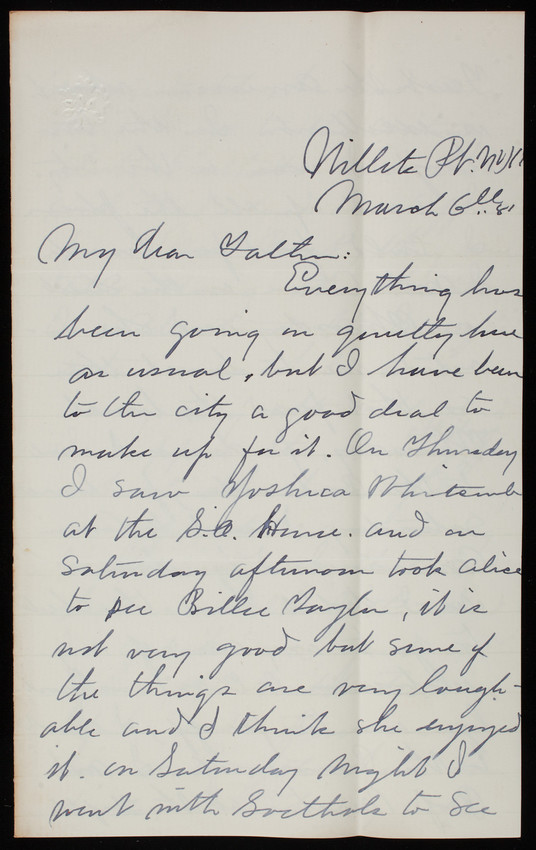 Willets Pt. N.Y.H.
March 6th 81
My dear Father:
Everything has
been going on quietly here
as usual, but I have been
to the city a good deal to
make up for it. On Thursday
I saw Joshua Whitcomb
at the G.O. House. and on
Saturday afternoon took Alice
to see Billee Taylor, it is
not very good but some of
the things are very laugh-
able and I think she enjoyed
it. on Saturday night I
went with Goethals to see